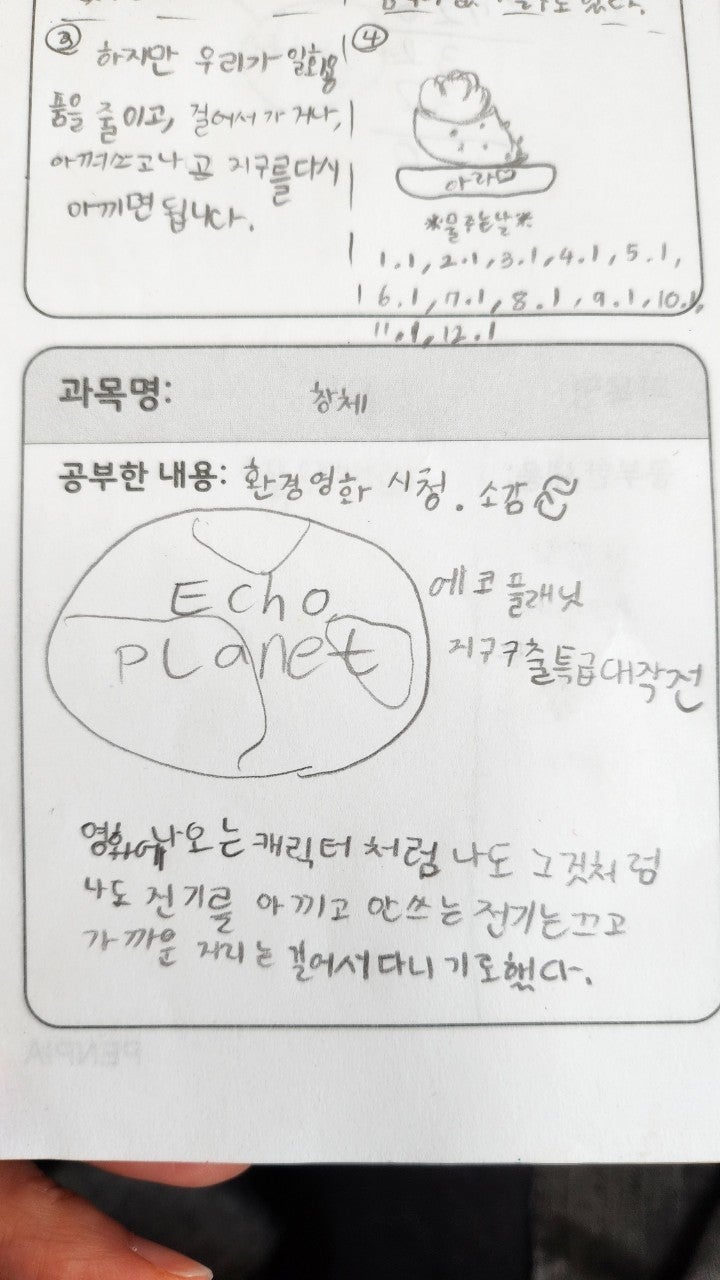 ③ 하지만 우리가 일회용
품을 줄이고, 걸어서 가거나,
아껴쓰고나 곧 지구를 다시
아끼면 됩니다.
④
아라♡
*물주는날*
1.1, 2.1, 3.1, 4.1, 5.1,
6.1, 7.1, 8.1, 9.1, 10.1,
11.1, 12.1
과목명: 창체
공부한 내용: 환경영화 시청. 소감문
Echo
planet
에코플래닛
지구구출특급대작전
영화에 나오는 캐릭터 처럼 나도 그것처럼
나도 전기를 아끼고 안쓰는 전기는 끄고
가까운 거리는 걸어서 다니기로했다.
PENPIA